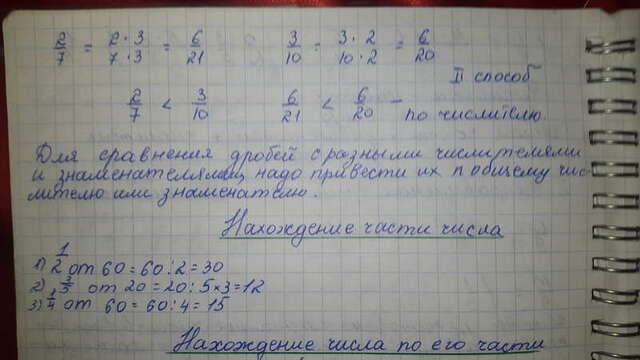 2/7 = 2·3/7·3 = 6/21   3/10 = 3·2/10·2 = 6/20
II способ
2/7 < 3/10   6/21 < 6/20 – по числителю
Для сравнения дробей с разными числителями
и знаменателями, надо привести их к общему чис-
лителю или знаменателю.
Нахождение части числа
1) 1/2 от 60 = 60 : 2 = 30
2) 3/5 от 20 = 20 : 5 × 3 = 12
3) 1/4 от 60 = 60 : 4 = 15
Нахождение числа по его части